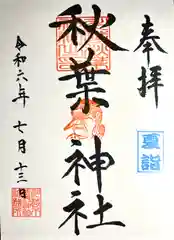 奉拝
夏詣
秋葉神社
令和六年 七月 十三日